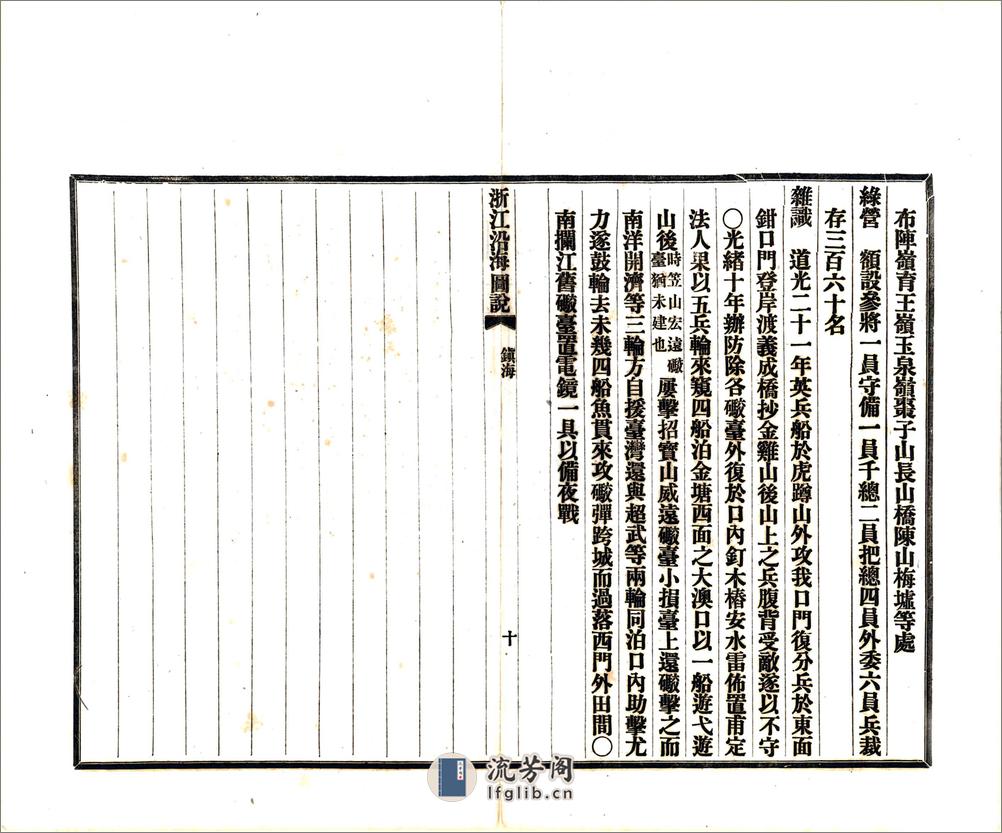 布陣嶺育王嶺玉泉嶺棗子山長山橋陳山梅墟等處
綠營　額設參將一員守備一員千總二員把總四員外委六員兵裁
存三百六十名
雜識　道光二十一年英兵船於虎蹲山外攻我口門復分兵於東面
鉗口門登岸渡義成橋抄金雞山後山上之兵腹背受敵遂以不守
〇光緒十年辦防除各礮臺外復於口內釘木樁安水雷佈置甫定
法人果以五兵輪來窺四船泊金塘西面之大澳口以一船遊弋遊
山後時笠山宏遠礮臺猶未建也屢擊招寶山威遠礮臺小損臺上還礮擊之而
南洋開濟等三輪方自援臺灣還與超武等兩輪同泊口內助擊尤
力遂鼓輪去未幾四船魚貫來攻礮彈跨城而過落西門外田間〇
南攔江舊礮臺置電鏡一具以備夜戰
浙江沿海圖說
鎮海
十
流芳阁
lfglib.cn